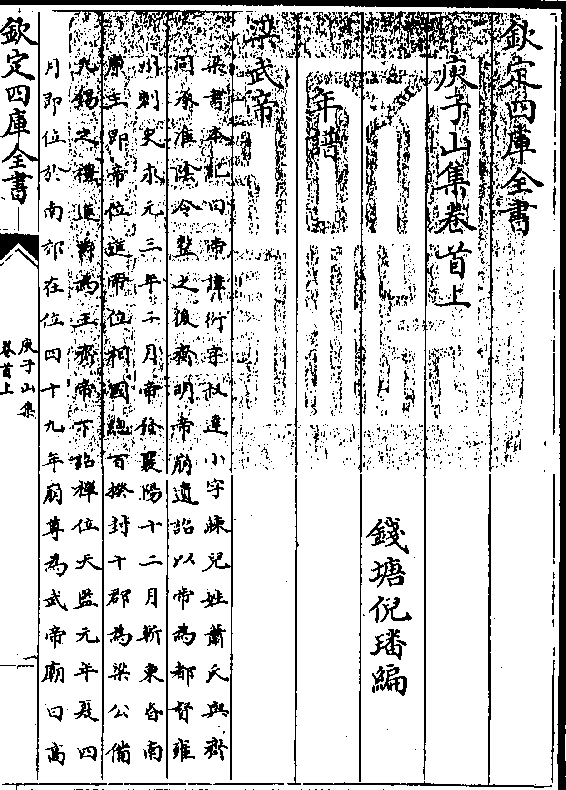 欽定四庫全書
庾子山集卷首上
錢塘倪璠編
年譜
梁武帝
梁書本紀曰帝諱衍字叔達小字練兒姓蕭氏與齊
同承淮陰令整之後齊明帝崩遺詔以帝為都督雍
州刺史永元三年二月帝發襄陽十二月斬東昏南
康王即帝位進帝位相國總百揆封十郡為梁公備
九錫之禮進爵為王齊帝下詔禪位天監元年夏四
月即位於南郊在位四十九年崩尊為武帝廟曰高
欽定四庫全書
庾子山集
卷首上
一